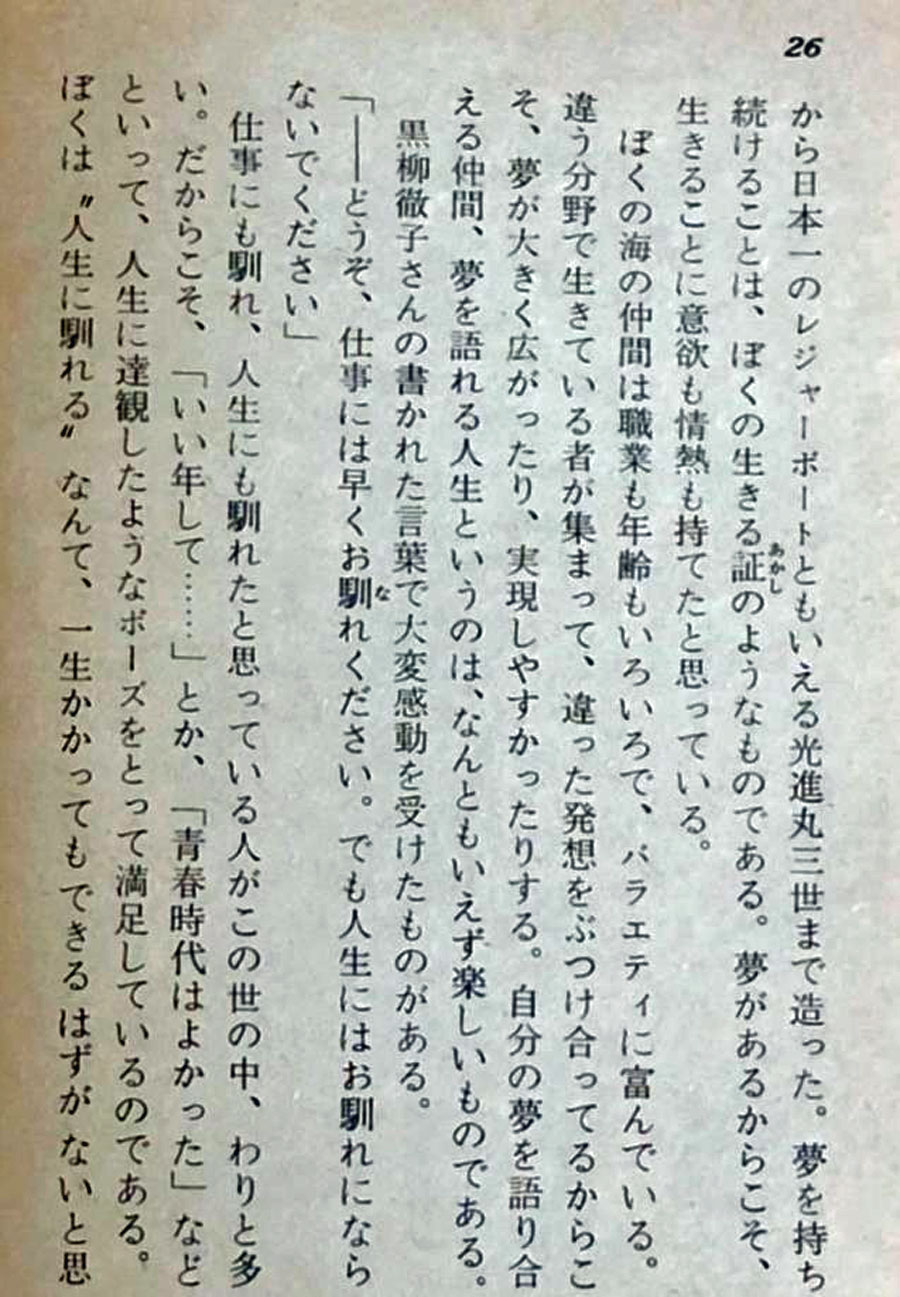 26
から日本一のレジャーボートともいえる光進丸三世まで造った。夢を持ち
続けることは、ぼくの生きる証のようなものである。夢があるからこそ、
あかし
生きることに意欲も情熱も持てたと思っている。
ぼくの海の仲間は職業も年齢もいろいろで、バラエティに富んでいる。
違う分野で生きている者が集まって、違った発想をぶつけ合ってるからこ
そ、夢が大きく広がったり、実現しやすかったりする。自分の夢を語り合
える仲間、夢を語れる人生というのは、なんともいえず楽しいものである。
黒柳徹子さんの書かれた言葉で大変感動を受けたものがある。
「――どうぞ、仕事には早くお馴れください。でも人生にはお馴れになら
な
ないでください」
仕事にも馴れ、人生にも馴れたと思っている人がこの世の中、わりと多
い。だからこそ、「いい年して……」とか、「青春時代はよかった」など
といって、人生に達観したようなポーズをとって満足しているのである。
ぼくは〝人生に馴れる〟なんて、一生かかってもできるはずがないと思